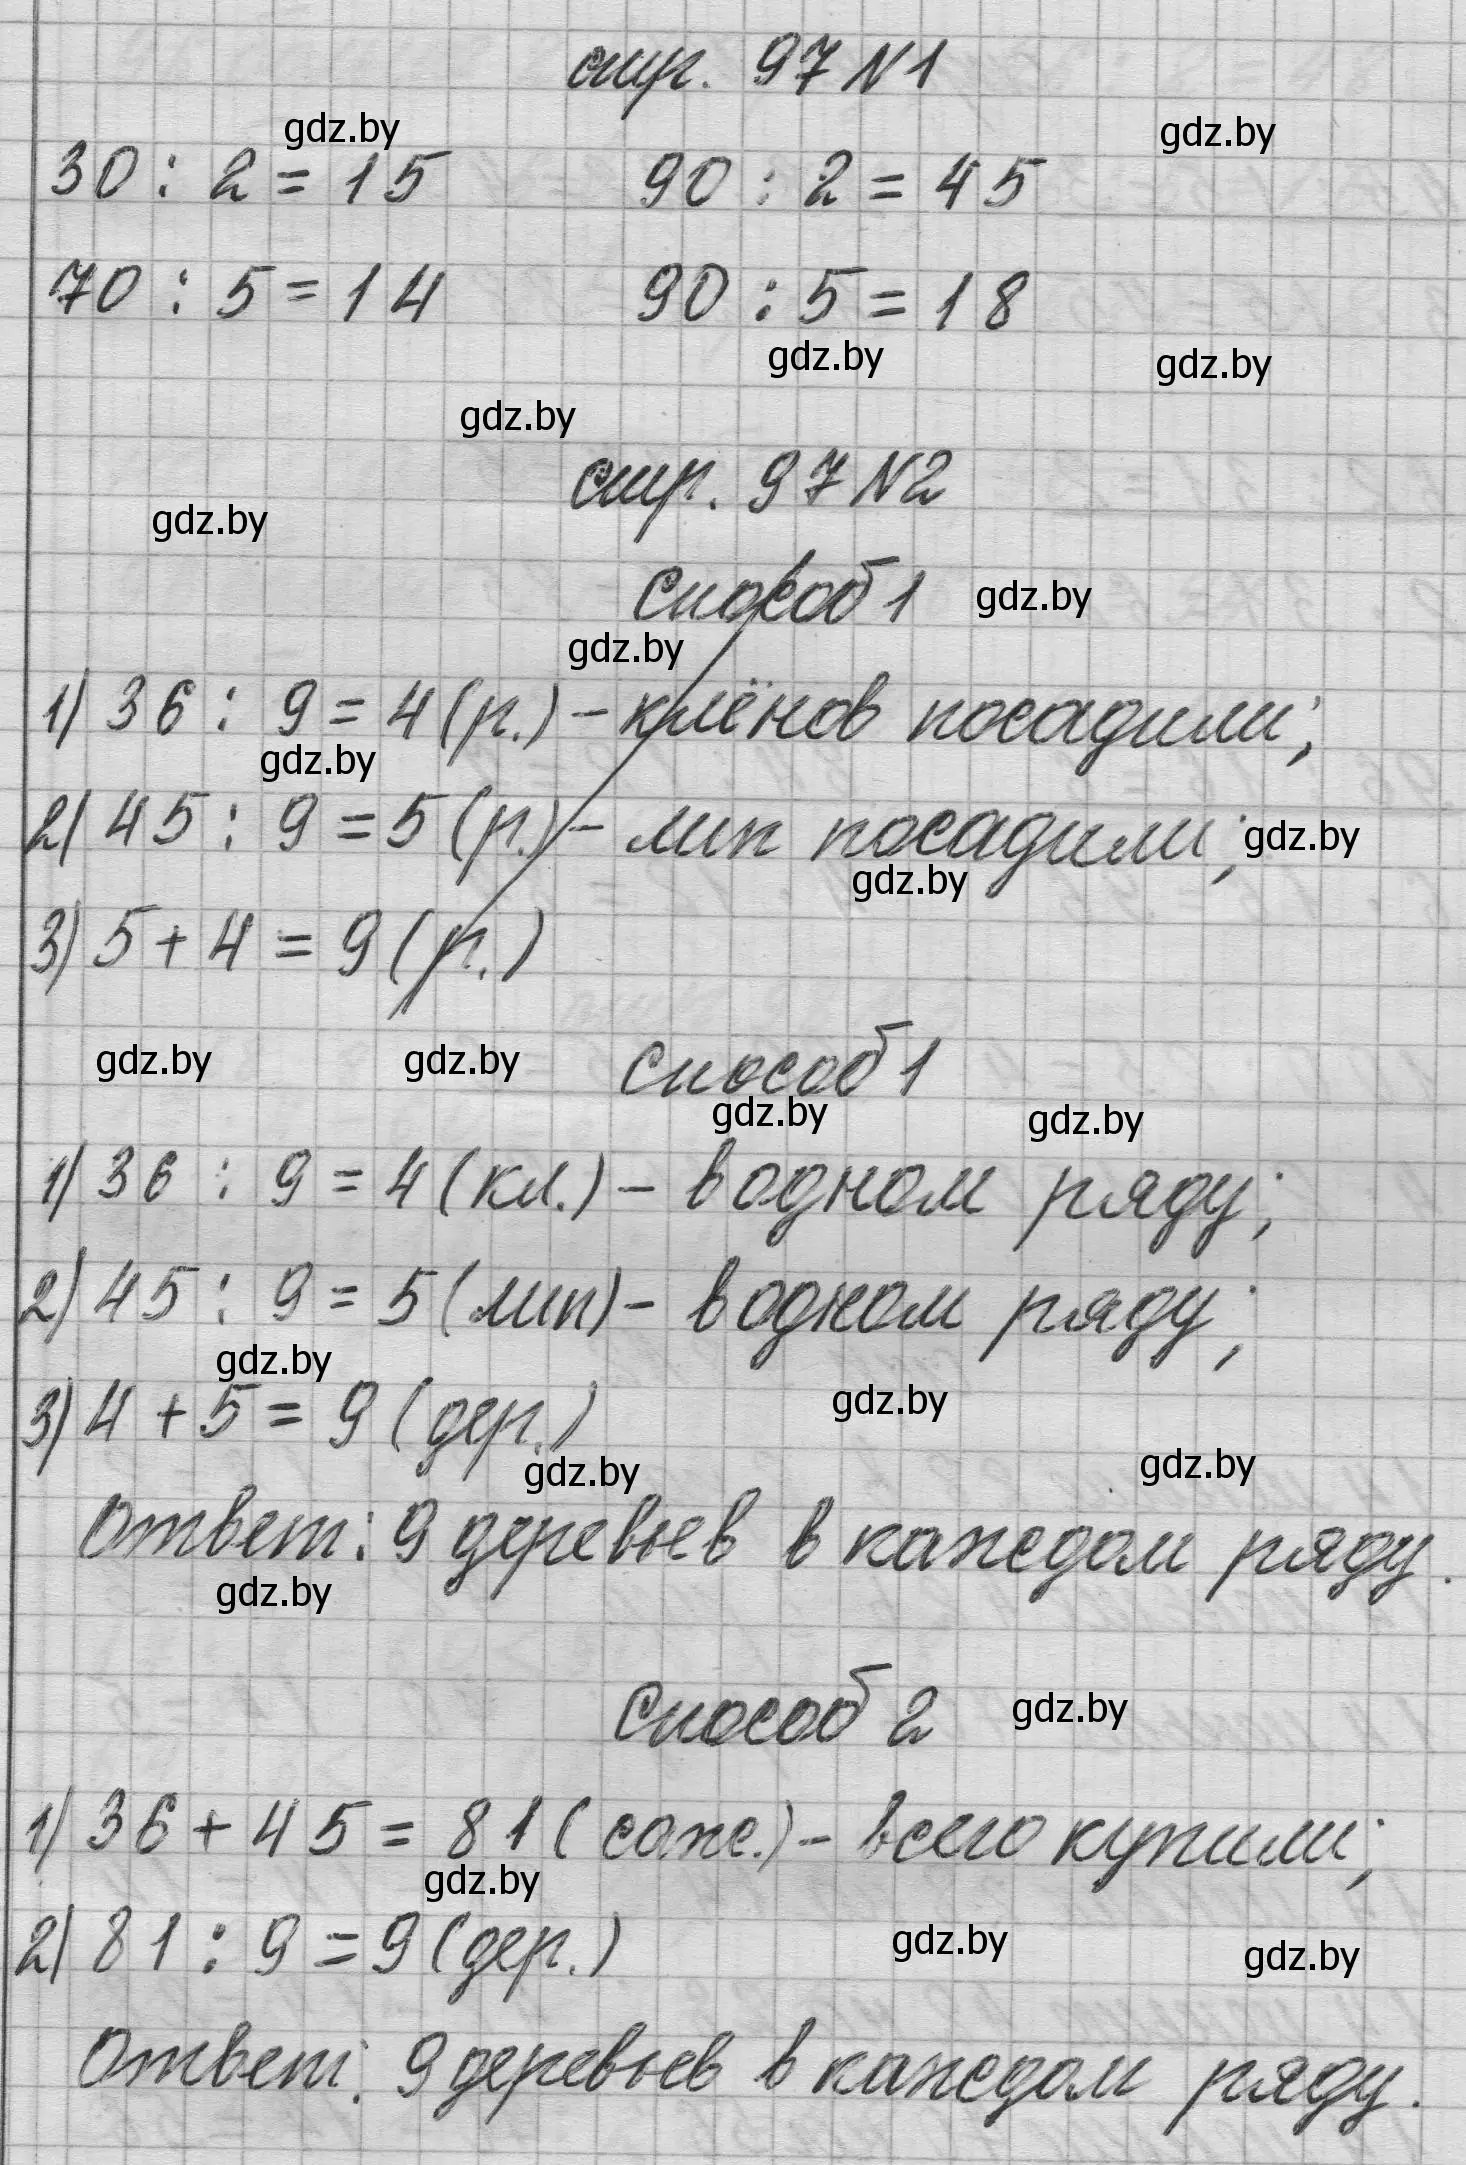 стр. 97 N1
gdz.by gdz.by
30 : 2 = 15 90 : 2 = 45
70 : 5 = 14 90 : 5 = 18
gdz.by gdz.by
gdz.by
стр. 97 N2
gdz.by
способ 1 gdz.by
gdz.by
1) 36 : 9 = 4 (р.) - клёнов посадили;
gdz.by
2) 45 : 9 = 5 (р.) - лип посадили; gdz.by
gdz.by
3) 5 + 4 = 9 (р.)
gdz.by gdz.by способ 1
gdz.by gdz.by
1) 36 : 9 = 4 (кл.) - в одном ряду;
2) 45 : 9 = 5 (лип) - в одном ряду;
gdz.by
3) 4 + 5 = 9 (дер.) gdz.by
gdz.by gdz.by
Ответ: 9 деревьев в каждом ряду.
gdz.by
способ 2 gdz.by
1) 36 + 45 = 81 (саж.) - всего купили;
gdz.by
2) 81 : 9 = 9 (дер.) gdz.by gdz.by
Ответ: 9 деревьев в каждом ряду.